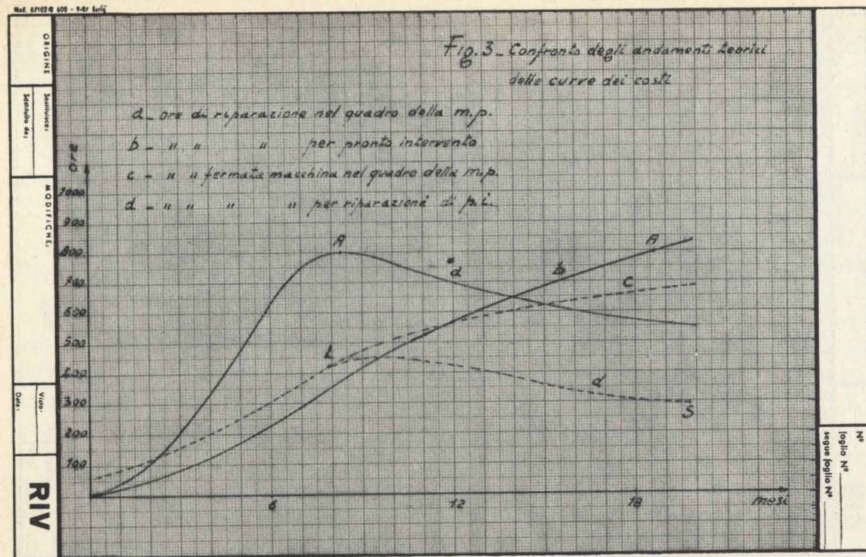 ORIGINE
Sostituisce:
Sostituito da:
MODIFICHE:
Visto:
Data:
RIV
Fig. 3 - Confronto degli andamenti teorici
delle curve dei costi
a - ore di riparazione nel quadro della m.p.
b - " " " per pronto intervento
c - " " fermata macchina nel quadro della m.p.
d - " " " " per riparazione di p.i.
ore
1000
900
800
700
600
500
400
300
200
100
A
a
b
A
c
L
d
S
6
12
18
mesi
N°
foglio N°
segue foglio N°